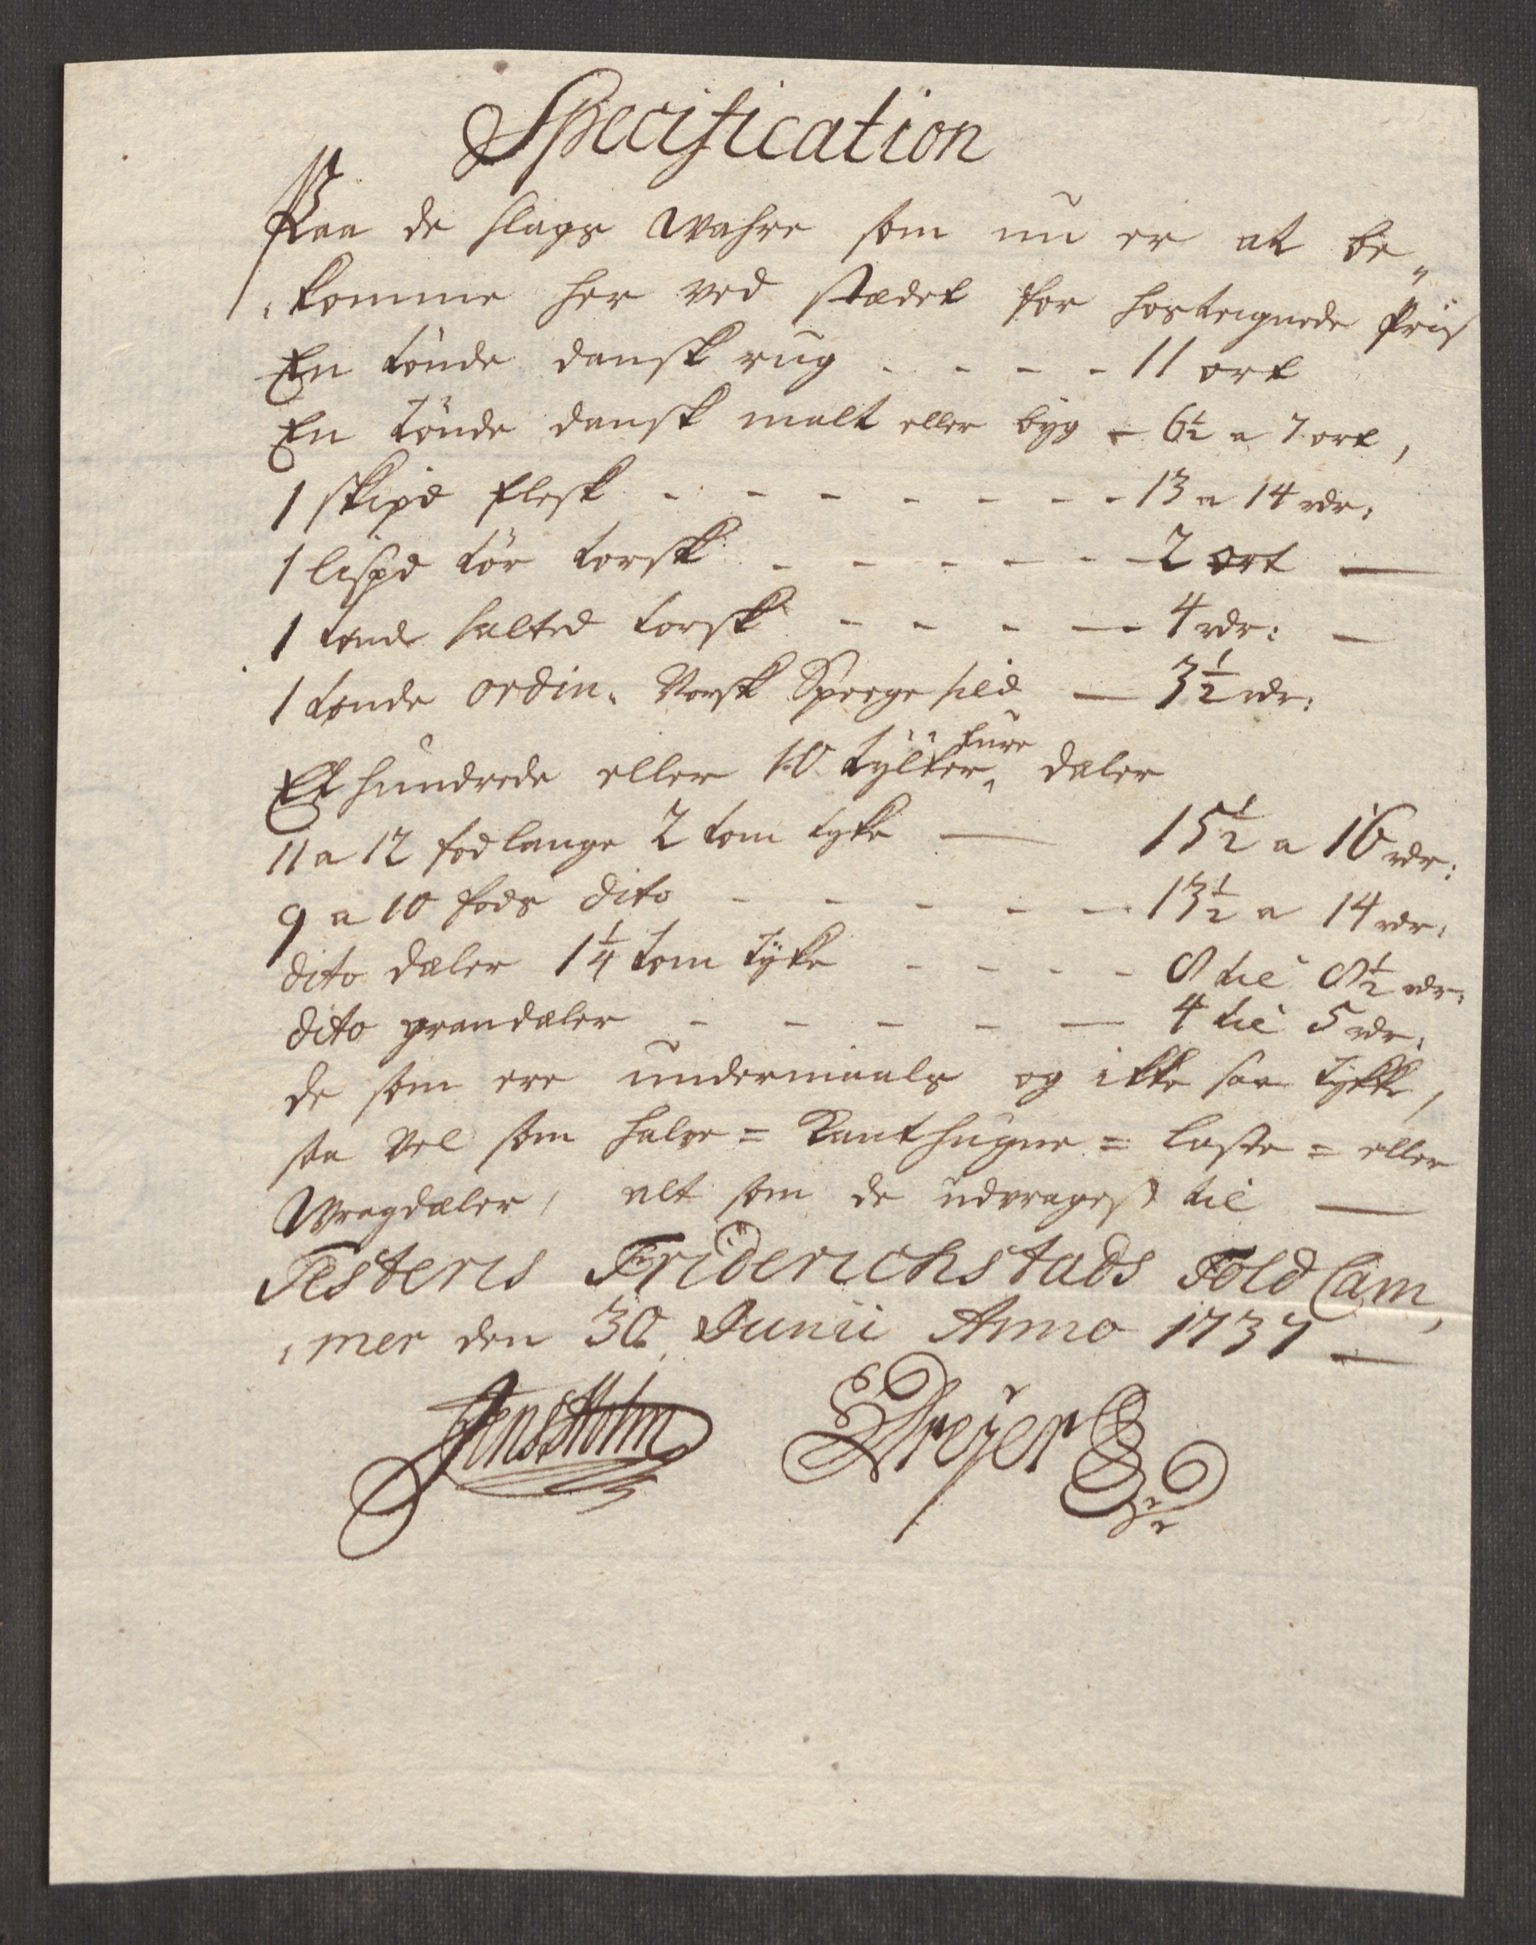 Specification
Paa de slags Wahre som nu er at be„
„komme her ved stædet for hosteignede Priis
En tönde dansk rug - - - - 11 ort
En tönde dansk malt eller byg - 6½ a 7 ort,
1 skipd flesk - - - - - - - 13 a 14 rdr:
1 lispd tör torsk - - - - - - 2 ort —
1 tønde salted torsk - - - - 4 rdr: —
1 tønde ordin. Norsk Speege sild — 3½ rdr:
Et hundrede eller 10 tylter furre daler
11 a 12 fod lange 2 tom tyke — 15½ a 16 rdr:
9 a 10 fods dito - - - - - 13½ a 14 rdr:
dito daler 1¼ tom tyke - - - - 8 til 8½ rdr:
dito grandæler - - - - - 4 til 5 rdr:
de som ere undermaals og ikke saa tykke,
saa vel som halve = Kanthugne = laste = eller
Wragdæler, alt som de udvrages til —
Testeris Friderichstads Told Cam„
„mer den 30 Junii Anno 1737 —
Jens Holm Dreyer